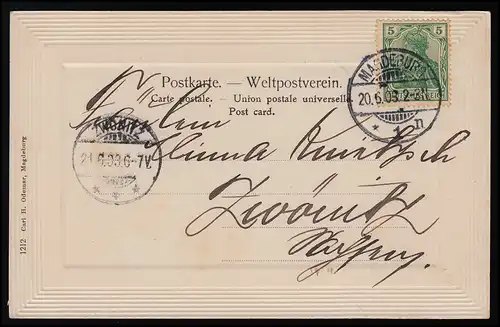 5 5
MAGDEBURG
20.6.03.2-3N
1 n
Postkarte. — Weltpostverein.
Carte postale. — Union postale universelle.
Post card.
Fräulein
21.6.03.6-7V.
Minna
Zwönitz
1212 Carl H. Odemar, Magdeburg